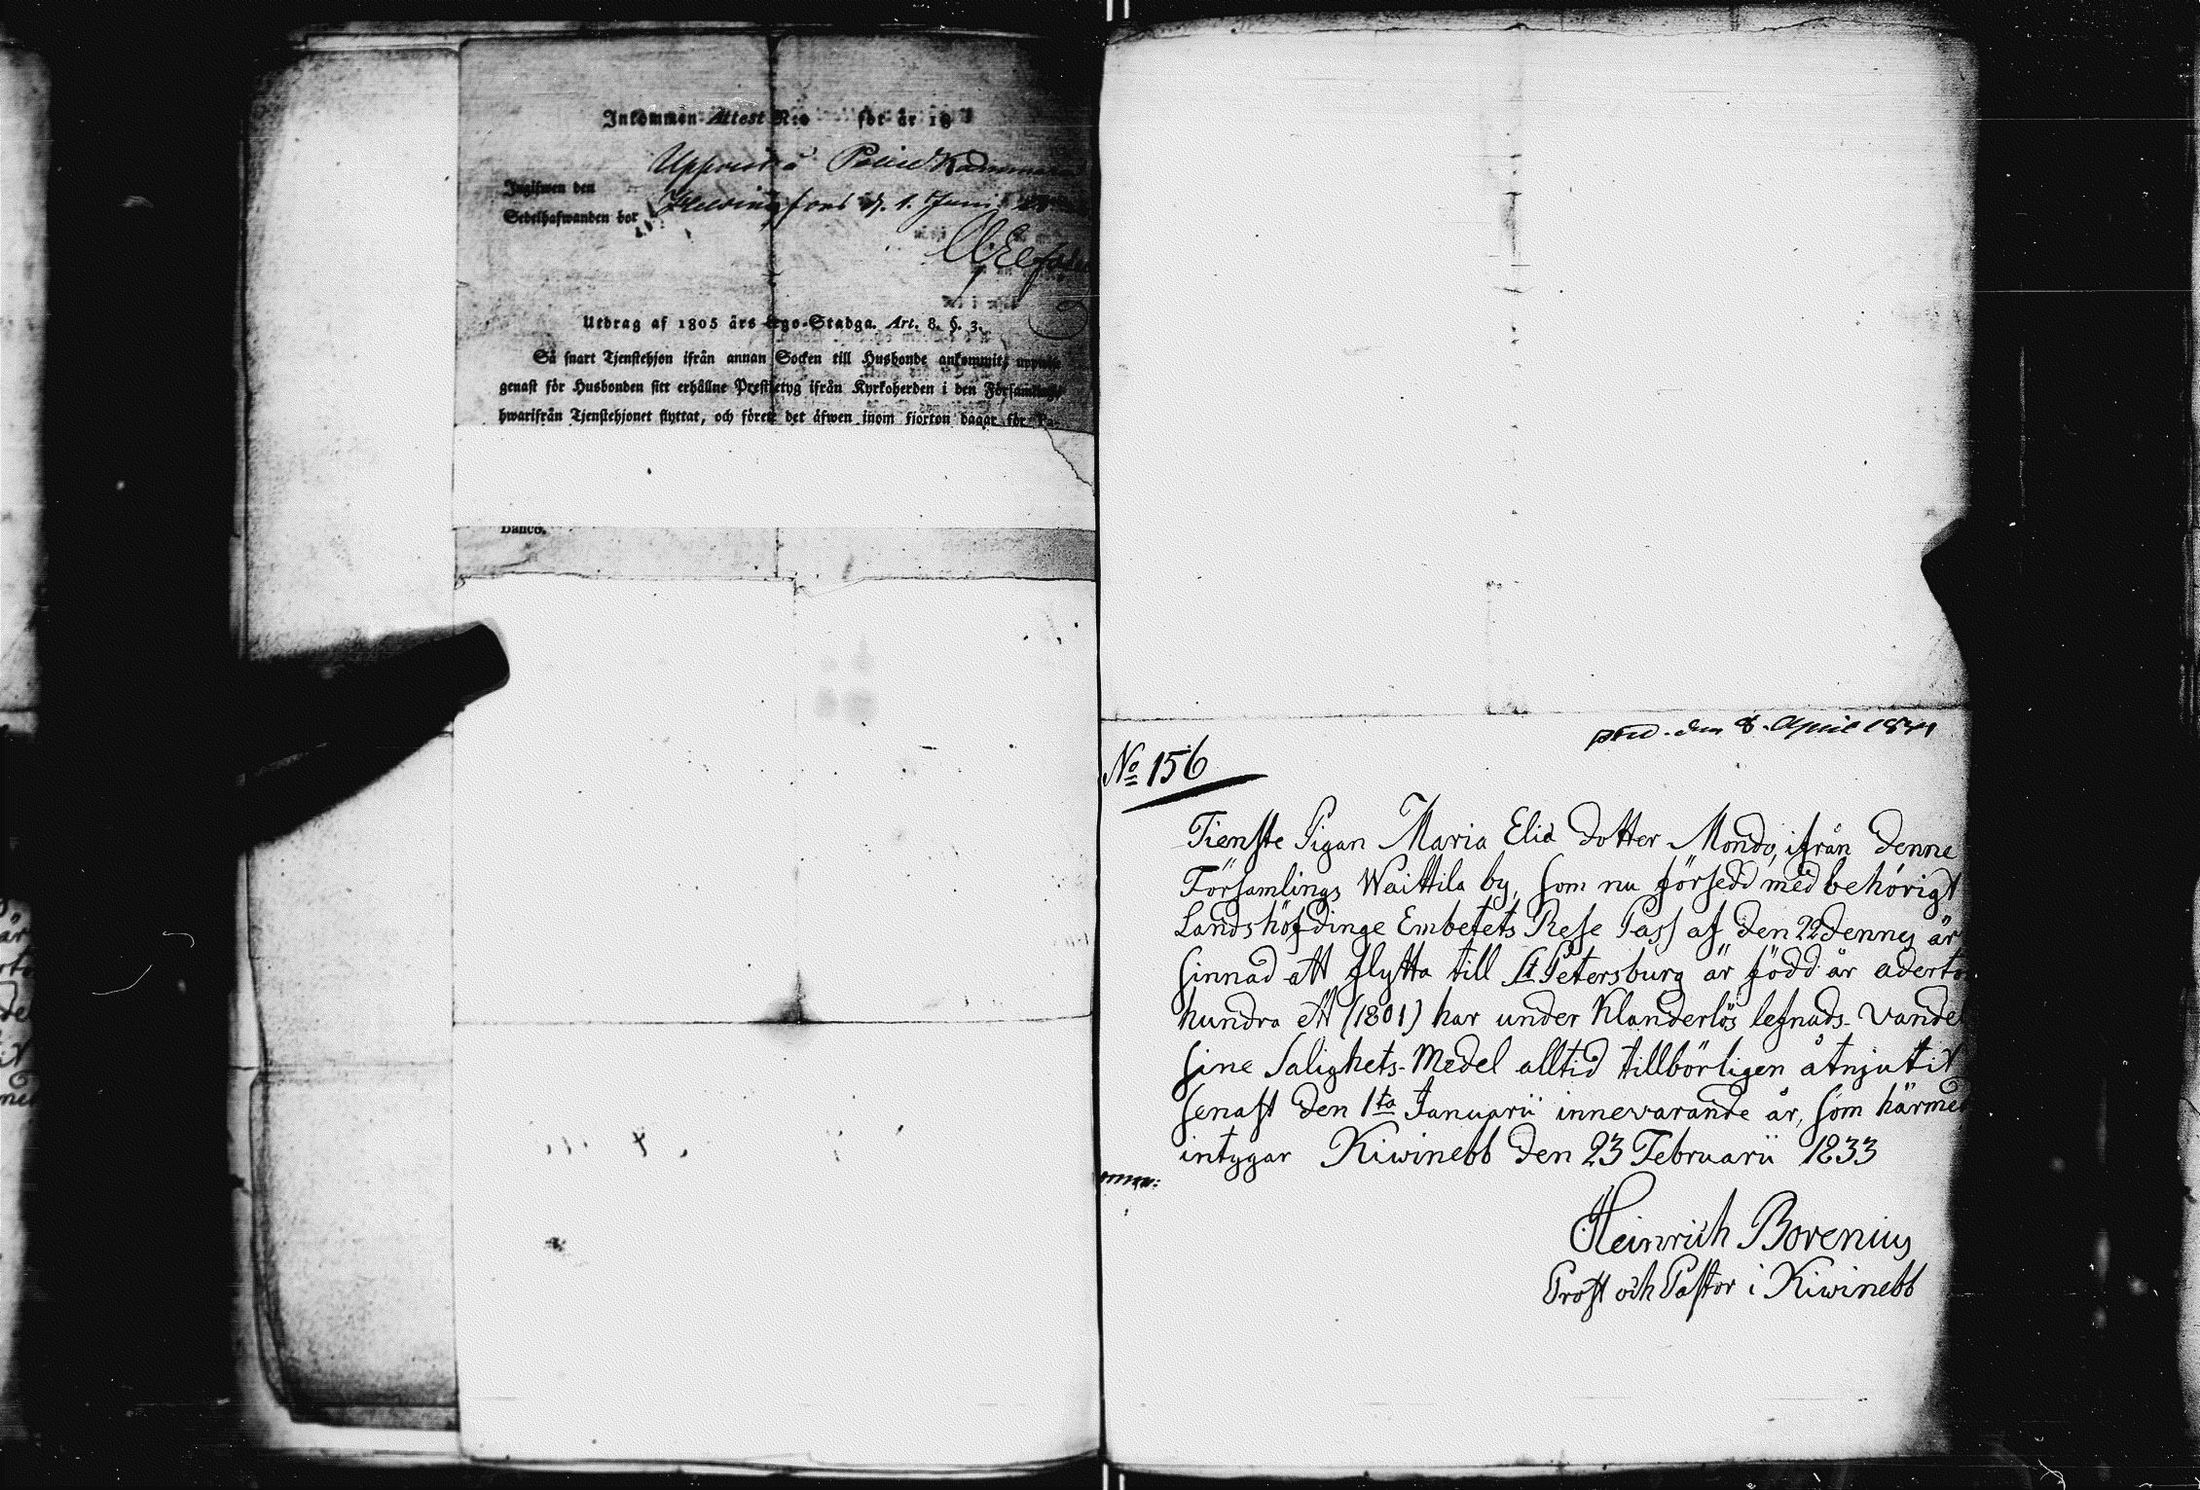 Inkommen Attest N:o för år 18
Uppvist å Police Kammaren
Ingifwen den
Helsingfors d. 1. Juni
Sedelhafwanden bor
Utdrag af 1805 års Lego-Stadga. Art. 8. §. 3.
Så snart Tjenstehjon ifrån annan Socken till Husbonde ankommit, uppwise
genast för Husbonden sitt erhållne Prestbetyg ifrån Kyrkoherden i den Församling,
hwarifrån Tjenstehjonet flyttat, och förete det äfwen inom fjorton dagar för Pa-
Banco.
den 8. April 18
No 156
Tienste Pigan Maria Elia dotter Mondo, ifrån denne
Församlings Waittila by, som nu försedd med behörigt
Landshöfdinge Embetets Rese Pass af den 22 dennes är
sinnad att flytta till St Petersburg är född år aderto
hundra ett (1801) har under Klanderlös lefnads-vandel
sine Salighets-Medel alltid tillbörligen åtnjutit
senast den 1ta Januarii innevarande år, som härmed
intygar Kiwinebb den 23 Februarii 1833
Heinrich Borenius
Prost och Pastor i Kiwinebb